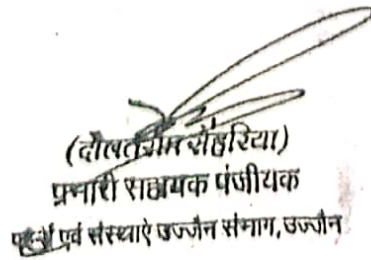 (दौलतराम सेहरिया)
प्रभारी सहायक पंजीयक
एवं संस्थाऐ उज्जैन संभाग, उज्जैन